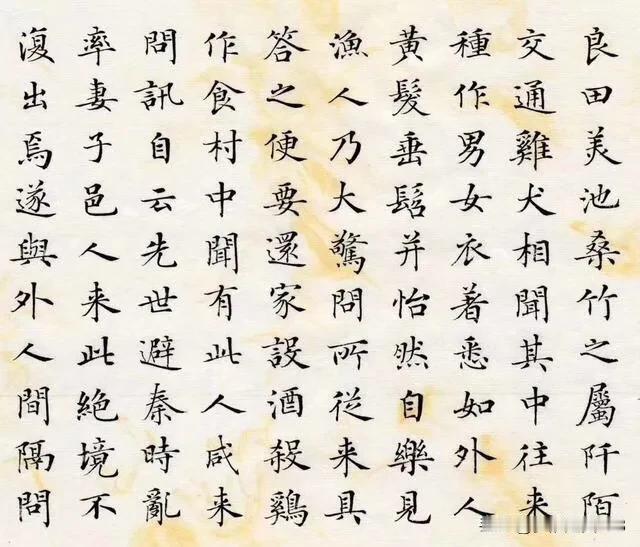 良田美池桑竹之屬阡陌
交通雞犬相聞其中往来
種作男女衣著悉如外人
黃髮垂髫并怡然自樂見
漁人乃大驚問所從来具
答之便要還家設酒殺鷄
作食村中聞有此人咸来
問訊自云先世避秦時亂
率妻子邑人来此絕境不
復出焉遂與外人間隔問